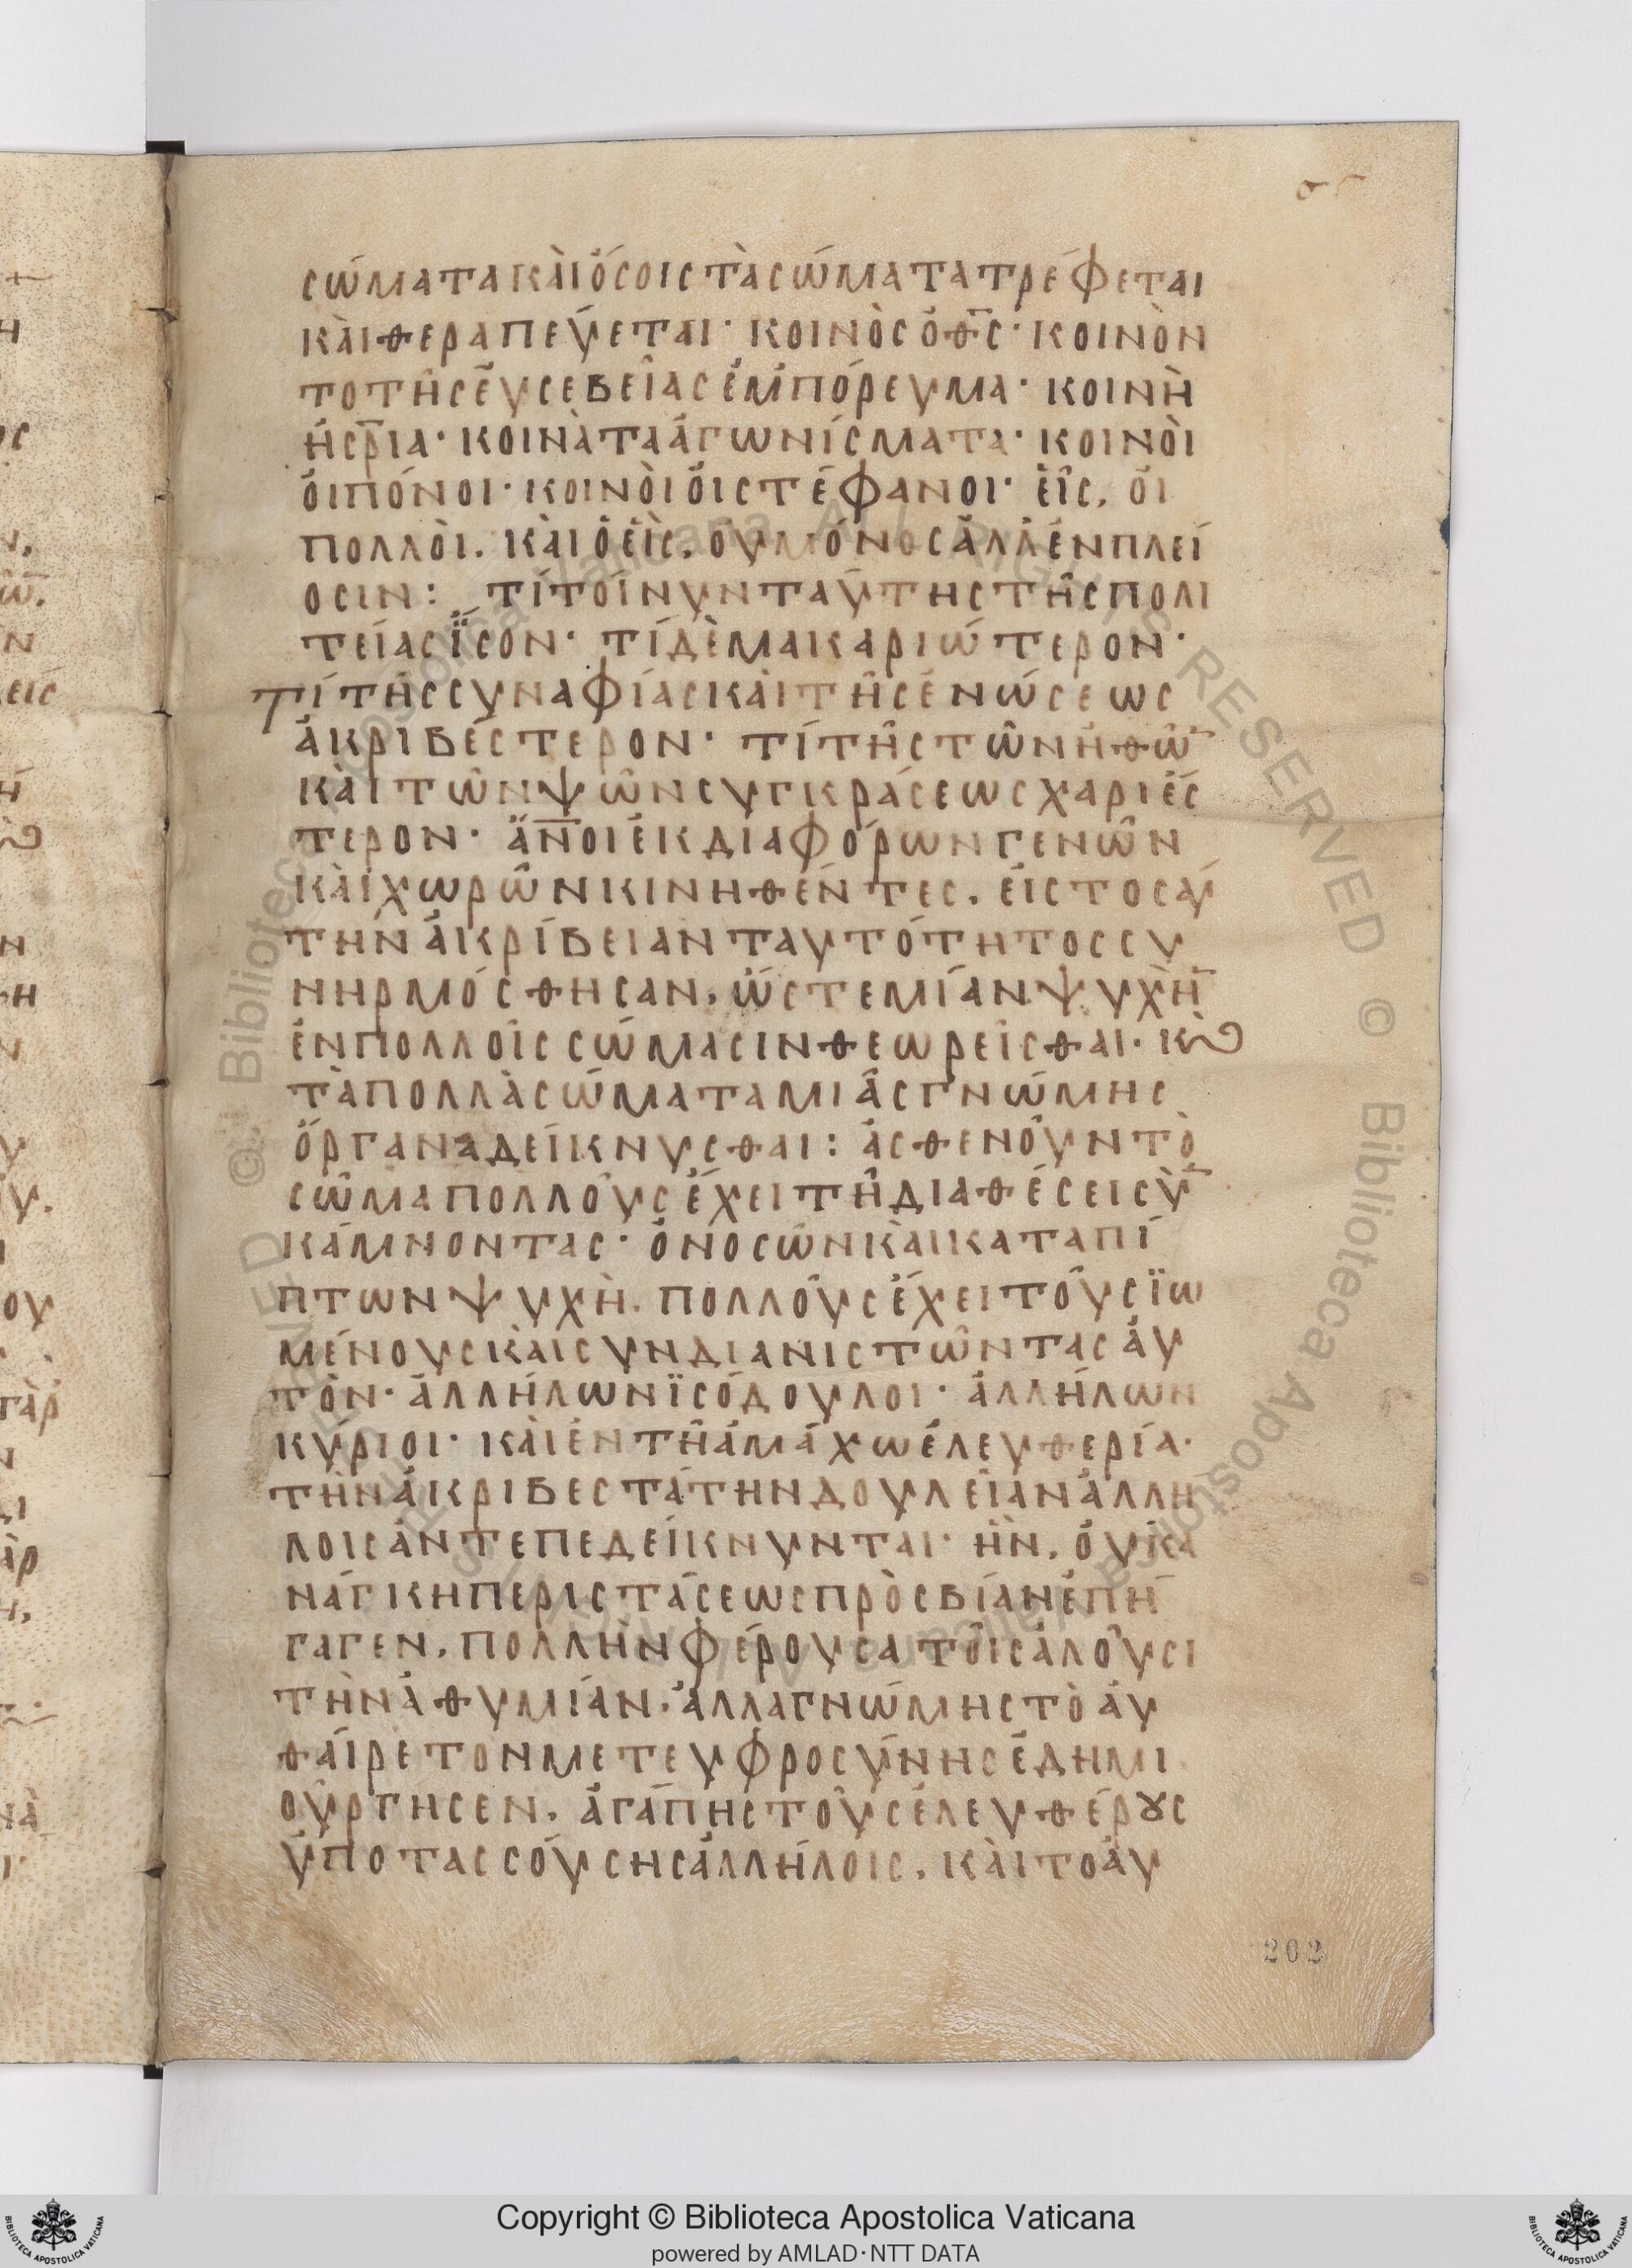 σϛ
σώματα κὰι ὅσοις τὰ σώματα τρέφεται
κὰι θεραπεύεται· κοινὸς ὁ θ̅ς· κοινὸν
το τῆς ἐυσεβείας ἐμπόρευμα· κοινὴ
ἡ σ̅ρια· κοινὰ τα ἀγωνίσματα· κοινὸι
ὁι πόνοι· κοινὸι ὁι στέφανοι· ἐῖς, ὁι
πολλὸι. κὰι ὁ ἐὶς, ὀυ μόνος ἀλλ' ἐν πλεί
οσιν: τί τοίνυν ταύτης τῆς πολι
τείας ἴσον· τί δὲ μακαριώτερον·
τί τῆς συναφίας κὰι τῆς ἑνώσεως
ἀκριβέστερον· τί τῆς τῶν ἠθῶ̅
κὰι τῶν ψ̅ῶν συγκράσεως χαριές
τερον· ἄν̅οι ἐκ διαφόρων γενῶν
κὰι χωρῶν κινηθέντες, ἐις τοσαύ
την ἀκρίβειαν ταυτότητος συ
νηρμόσθησαν, ὥστε μίαν ψυχὴ̅
ἐν πολλοῖς σώμασιν θεωρεῖσθαι· κ̀
τὰ πολλὰ σώματα μιᾶς γνώμης
ὄργανα δείκνυσθαι: ἀσθενοῦν τὸ
σῶμα πολλοὺς ἔχει τῆ διαθέσει σὺ̅
κάμνοντας· ὁ νοσῶν κὰι καταπί
πτων ψυχὴ. πολλοὺς ἔχει τοὺς ϊω
μένους κὰι συνδιανιστῶντας ἀυ
τὸν· ἀλλήλων ϊσόδουλοι· ἀλλήλων
κύριοι· κὰι ἐν τῆ ἀμάχω ἐλευθερία·
τὴν ἀκριβεστάτην δουλείαν ἀλλή
λοις ἀντεπεδείκνυνται· ἣν, ὀυκ ἀ
νάγκη περιστάσεως πρὸς βίαν ἐπή
γαγεν, πολλὴν φέρουσα τοῖς ἁλοῦσι
τὴν ἀθυμίαν, ἀλλα γνώμης τὸ ἀυ
θάιρετον μετ ευφροσύνης ἐδημι
ούργησεν, ἀγάπης τοὺς ἐλευθέρους
ὑποτασσούσης ἀλλήλοις, κὰι το ἀυ
202
Copyright © Biblioteca Apostolica Vaticana
powered by AMLAD·NTT DATA